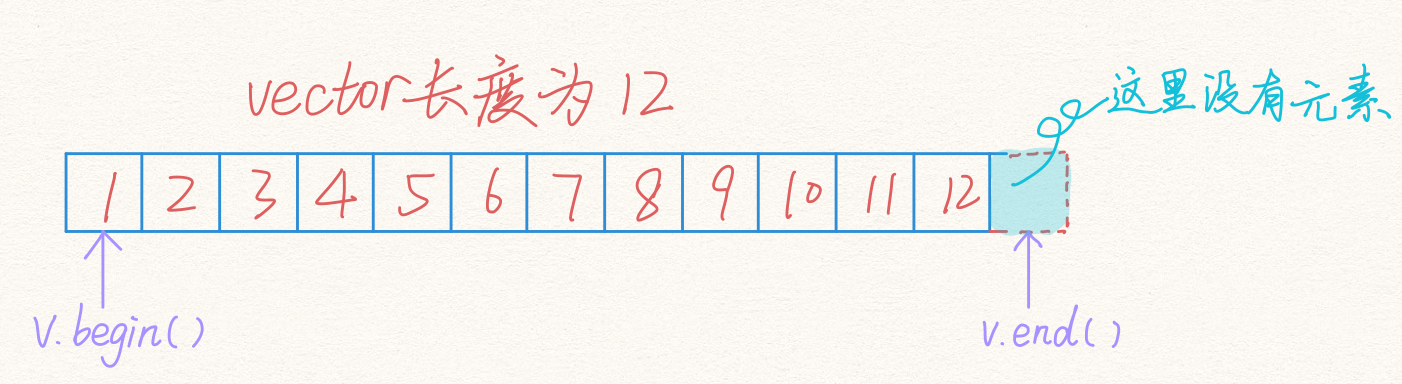 vector长度为 12
这里没有元素
1 2 3 4 5 6 7 8 9 10 11 12
v.begin()
v.end()